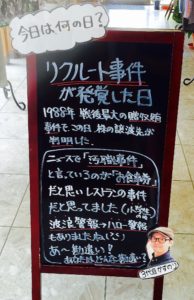 今日は何の日?
リクルート事件
が発覚した日
1988年 戦後最大の贈収賄
事件で、この日 株の譲渡先が
判明した。
ニュースで「汚職事件」
と言っているのが「お食事券」
だと思いレストランの事件
だと思ってました(小学生
波浪警報→ハロー警報
もありました
あ〜勘違い?
あなたはどんな勘違い?
3代目ですヮ